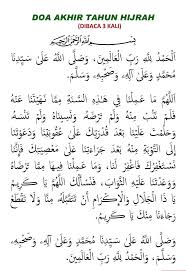 DOA AKHIR TAHUN HIJRAH
(DIBACA 3 KALI)
بِسْمِ اللهِ الرَّحْمٰنِ الرَّحِيْمِ
اَلْحَمْدُ لِلّٰهِ رَبِّ الْعَالَمِيْنَ، وَصَلَّى اللهُ عَلَى سَيِّدِنَا
مُحَمَّدٍ وَعَلَى آلِهِ، وَصَحْبِهِ، وَسَلَّمَ.
اَللّٰهُمَّ مَا عَمِلْنَا فِي هٰذِهِ السَّنَةِ مِمَّا نَهَيْتَنَا عَنْهُ
فَلَمْ نَتُبْ مِنْهُ وَلَمْ تَرْضَهُ، وَنَسِيْنَاهُ وَلَمْ تَنْسَهُ
وَحَلُمْتَ عَلَيْنَا بَعْدَ قُدْرَتِكَ عَلَى عُقُوْبَتِنَا وَدَعَوْتَنَا
إِلَى التَّوْبَةِ مِنْهُ بَعْدَ جَرَاءَتِنَا عَلَى مَعْصِيَتِكَ فَإِنَّا
نَسْتَغْفِرُكَ فَاغْفِرْ لَنَا، وَمَا عَمِلْنَا فِيْهَا مِمَّا تَرْضَاهُ
وَوَعَدْتَنَا عَلَيْهِ الثَّوَابَ، فَنَسْأَلُكَ اللّٰهُمَّ يَا كَرِيْمُ
يَا ذَا الْجَلَالِ وَالْإِكْرَامِ أَنْ تَتَقَبَّلَهُ مِنَّا وَلَا تَقْطَعْ
رَجَاءَنَا مِنْكَ يَا كَرِيْمُ.
وَصَلَّى اللهُ عَلَى سَيِّدِنَا مُحَمَّدٍ وَعَلَى آلِهِ، وَصَحْبِهِ،
وَسَلَّمَ وَالْحَمْدُ لِلّٰهِ رَبِّ الْعَالَمِيْنَ.